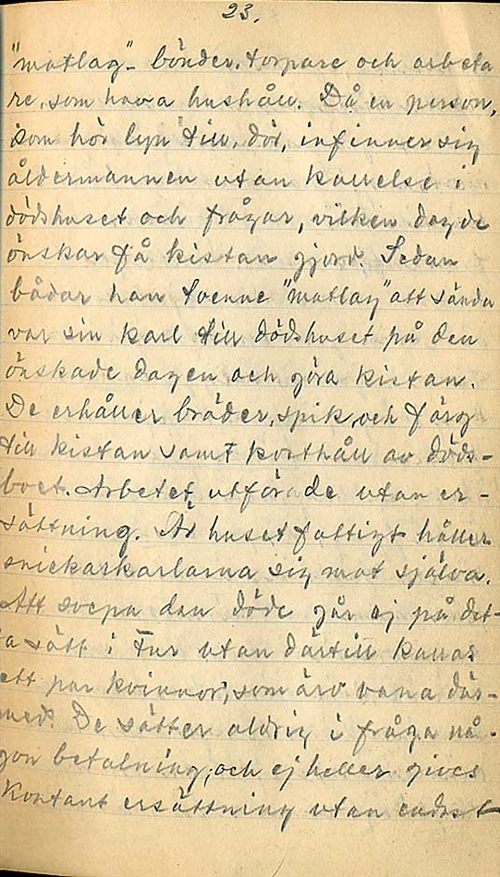 23.
"matlag" - bönder, torpare och arbeta
re, som hava hushåll. Då en person,
som hör byn till, dör, infinner sig
åldermannen utan kallelse i
dödshuset och frågar, vilken dag de
önskar få kistan gjord. Sedan
bådar han tvenne "matlag" att sända
var sin karl till dödshuset på den
önskade dagen och göra kistan.
De erhåller bräder, spik och färg
till kistan samt kosthåll av döds-
boet. Arbetet utförade utan er-
sättning. Är huset fattigt håller
snickarkarlarna sig mat själva.
Att svepa den döde går ej på det-
ta sätt i tur utan därtill kallas
ett par kvinnor, som äro vana där-
med. De sätter aldrig i fråga nå-
gon betalning, och ej heller gives
kontant ersättning utan endast